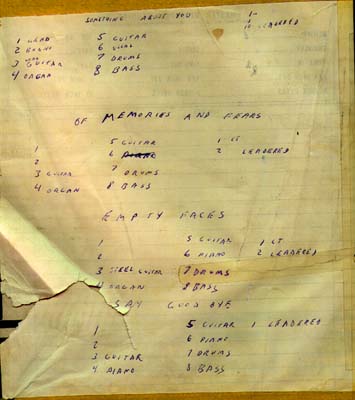 SOMETHING ABOUT YOU 1
1 LEAD 5 GUITAR LEADERED
2 6 VOCAL
3 GUITAR 7 DRUMS
4 ORGAN 8 BASS
OF MEMORIES AND FEARS
1 5 GUITAR 1 CT
2 6 PIANO 2 LEADERED
3 GUITAR 7 DRUMS
4 ORGAN 8 BASS
EMPTY FACES
1 5 GUITAR 1 CT
2 6 PIANO 2 LEADERED
3 STEEL GUITAR 7 DRUMS
4 ORGAN 8 BASS
SAY GOOD BYE
1 5 GUITAR 1 LEADERED
2 6 PIANO
3 GUITAR 7 DRUMS
4 PIANO 8 BASS